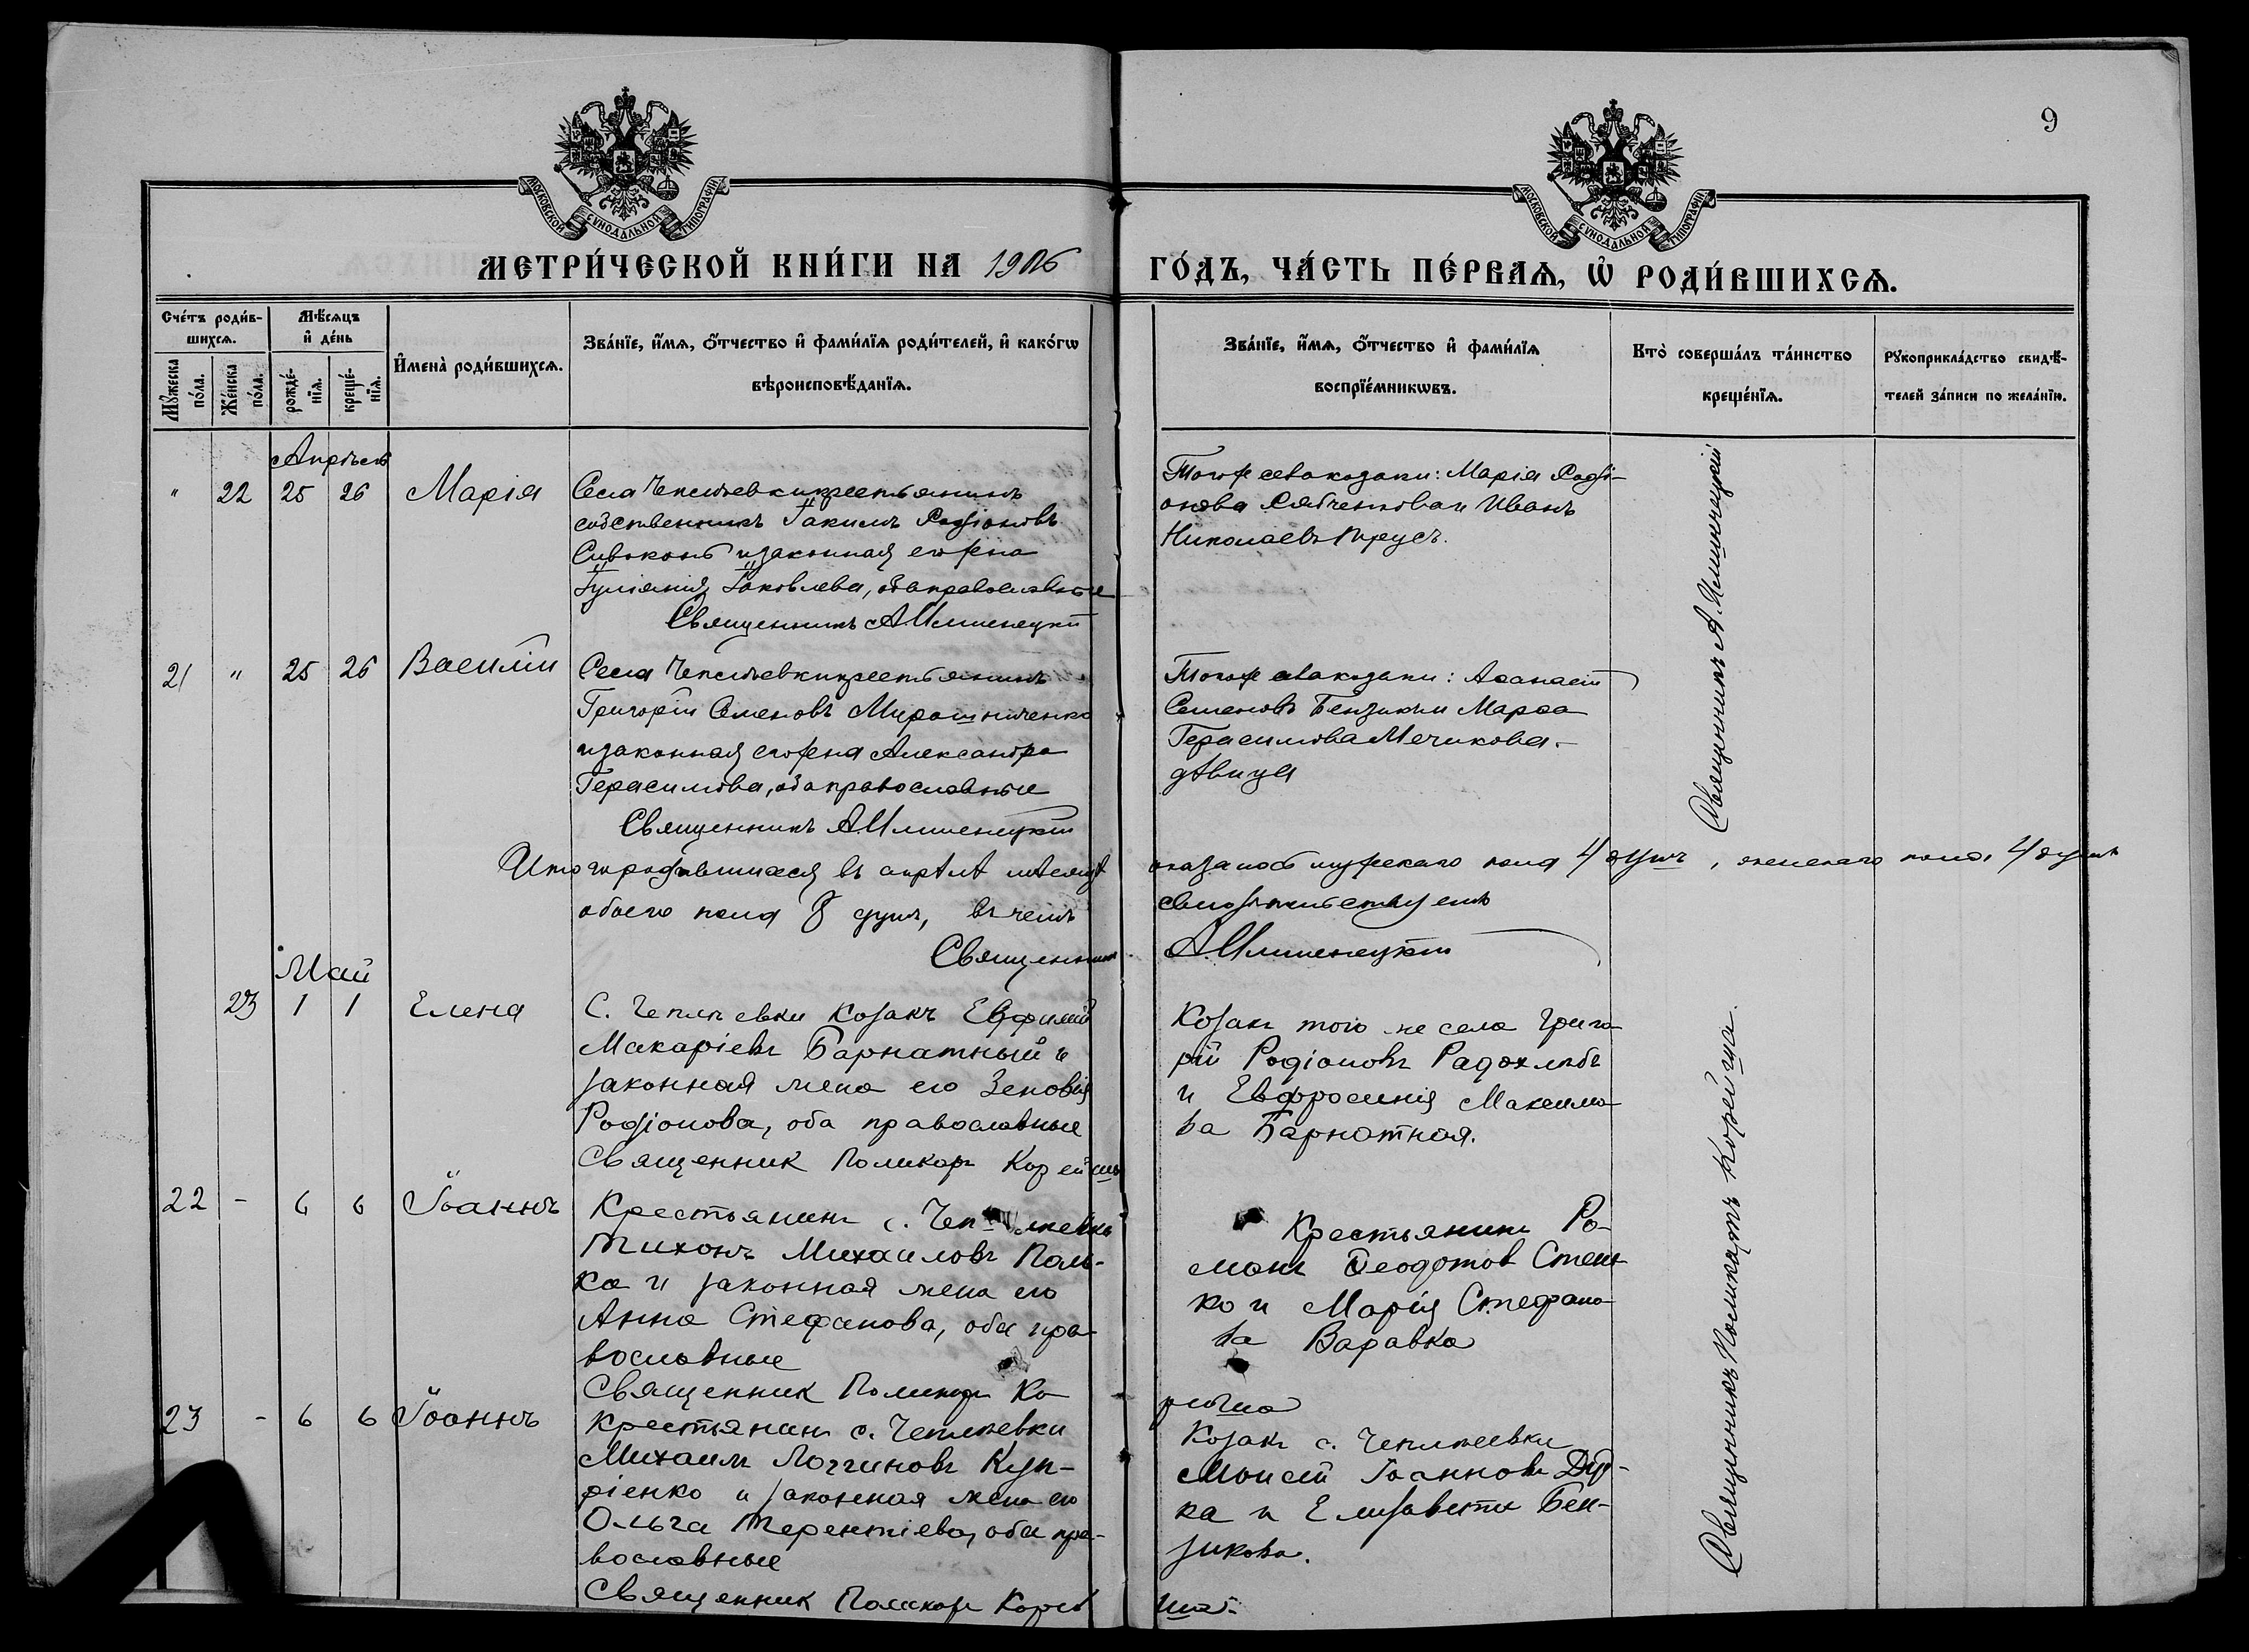 9
МОСКОВСКОЙ СѴНОДАЛЬНОЙ ТИПОГРАФІИ
МОСКОВСКОЙ СѴНОДАЛЬНОЙ ТИПОГРАФІИ
МЕТРИ́ЧЕСКОЙ КНИ́ГИ НА 1906 ГО́ДЪ, ЧА́СТЬ ПЕ́РВАѦ, Ѡ҆ РОДИ́ВШИХСѦ.
Сче́тъ роди́в-
шихсѧ.
Мѣ́сѧцъ
и҆ де́нь
И҆мена̀ роди́вшихсѧ.
Зва́нїе, и҆́мѧ, ѻ҆́тчество и҆ фами́лїѧ роди́телей, и҆ како́гѡ
вѣроисповѣ́данїѧ.
Зва́нїе, и҆́мѧ, ѻ҆́тчество и҆ фами́лїѧ
воспрїе́мникѡвъ.
Кто̀ соверша́лъ та́инство
креще́нїѧ.
Рꙋкоприкла́дство свидѣ́-
телей за́писи по жела́нїю.
Мꙋ́жеска
по́ла.
Же́нска
по́ла.
рожде́-
нїѧ.
креще́-
нїѧ.
Апрѣль
" 22 25 26 Марія
Села Чепелевки крестьянинъ
собственникъ Іакимъ Родіоновъ
Сивоконь и законная его жена
Іуліанія Іаковлева, оба православные
Священникъ А. Илшенецкій
Того же села козаки: Марія Родi-
онова Рябченкова и Иванъ
Николаевъ Прусъ.
21 " 25 26 Василій
Села Чепелевки крестьянинъ
Григорій Семеновъ Мирошниченко
и законная его жена Александра
Герасимова, оба православные
Священникъ А. Илшенецкій
Того же села козаки: Аѳанасій
Семеновъ Бензикъ и Марѳа
Герасимова Мечикова.
дѣвица
Итого родившихся въ апрѣлѣ мѣсяцѣ оказалось мужескаго пола 4 душъ, женскаго пола 4 душъ
обоего пола 8 душъ, въ чемъ свидѣтельствуемъ
Священникъ А. Илшенецкій
Май
23 1 1 Елена
С. Чепелевки козакъ Евфимій
Макаріевъ Барнатный и
законная жена его Зеновія
Родіонова, оба православные
Священник Поликарп Корейша
Козакъ того же села Григо-
рій Родіоновъ Радохлѣбъ
и Евфросинія Максимо-
ва Барнатная.
22 - 6 6 Іоаннъ
Крестьянинъ с. Чепелевки
Тихонъ Михаиловъ Поль-
ка и законная жена его
Анна Стефанова, оба пра-
вославные
Священник Поликарп Ко-
рейша
Крестьянинъ Ро-
манъ Ѳеодотов Стень-
ко и Марія Стефано-
ва Варавка
23 - 6 6 Іоаннъ
Крестьянинъ с. Чепелевки
Михаилъ Логгиновъ Куп-
ріенко и законная жена его
Ольга Терентіева, оба пра-
вославные
Священник Поликарп Корей-
ша.
Козакъ с. Чепелевки
Моисей Іоанновъ Дуд-
ка и Елизавета Бен-
зикова.
Священникъ А. Илшенецкій
Священникъ Поликарпъ Корейша.